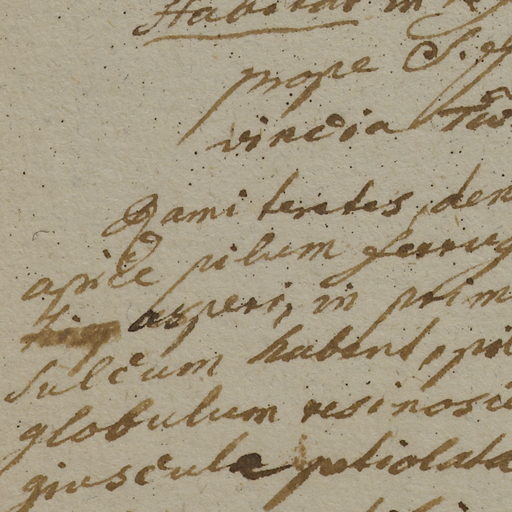 Habitat in
prope S.
vincia
Rami teretes, den
apice pilum ferrug
asperi, in prim
sulcum habent, pil
globulum resinosu
giuscula petiolata